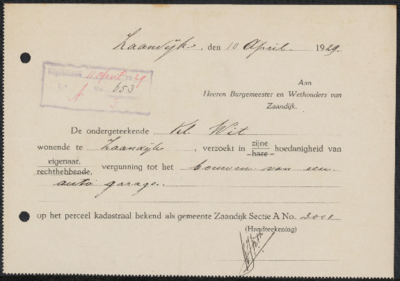 Zaandijk, den 10 April 1929.
11 April 1929
A No. 653
Aan
Heeren Burgemeester en Wethouders van
Zaandijk.
De ondergeteekende Kl. Wit
wonende te Zaandijk, verzoekt in zijne hare hoedanigheid van
eigenaar, rechthebbende, vergunning tot het bouwen van een
auto garage
op het perceel kadastraal bekend als gemeente Zaandijk Sectie A No.
(Handteekening)